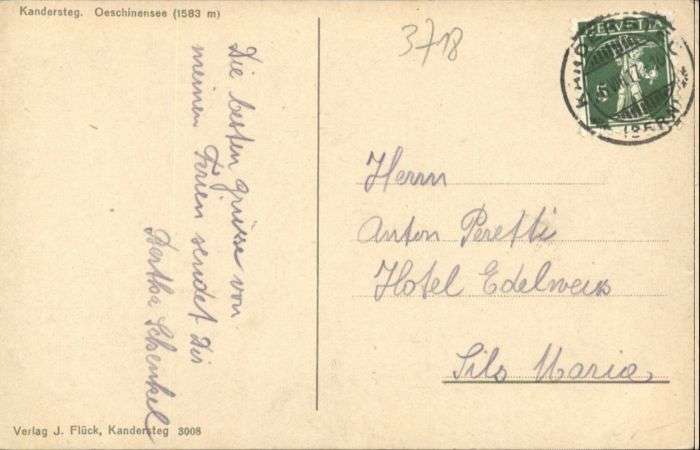 Kandersteg. Oeschinensee (1583 m)
3718
HELVETIA
5
KANDERSTEG
(BERN)
Die besten Grüsse von
meinen Ferien sendet dir
Bertha Schenkel
Herrn
Anton Peretti
Hotel Edelweiss
Sils Maria
Verlag J. Flück, Kandersteg 3008